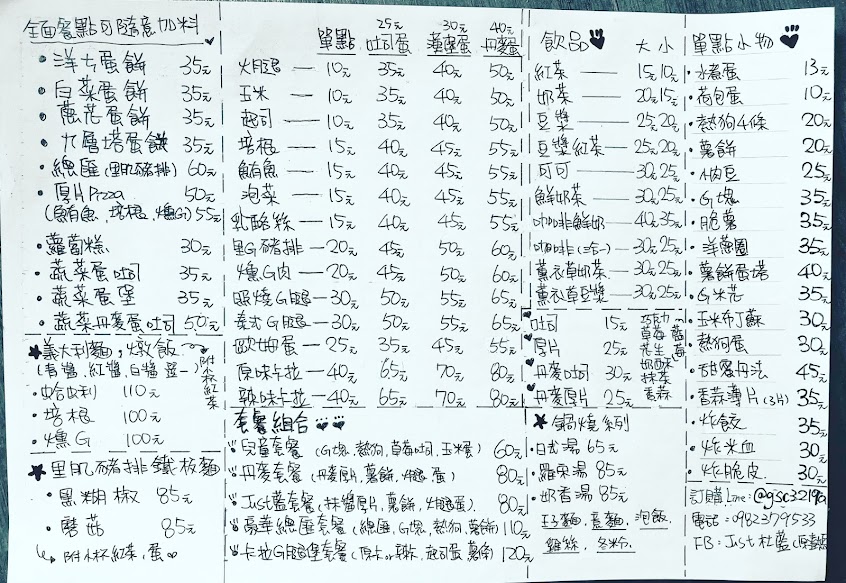 全面餐點可隨意加料
• 洋蔥蛋餅 35元
• 白菜蛋餅 35元
• 蔥花蛋餅 35元
• 九層塔蛋餅 35元
• 總匯(里肌豬排) 60元
• 厚片Pizza 50元
(鮪魚、培根、燻G) 55元
• 蘿蔔糕 30元
• 蔬菜蛋吐司 35元
• 蔬菜蛋堡 35元
• 蔬菜丹麥蛋吐司 50元
★義大利麵,燉飯
(青醬,紅醬,白醬 選一)
附小杯紅茶
• 蛤利 110元
• 培根 100元
• 燻G 100元
★里肌豬排鐵板麵
• 黑糊椒 85元
• 蘑菇 85元
附小杯紅茶,蛋
25元 30元 40元
單點 吐司蛋 漢堡蛋 丹麥蛋
火腿 — 10元 35元 40元 50元
玉米 — 10元 35元 40元 50元
起司 — 10元 35元 40元 50元
培根 — 15元 40元 45元 55元
鮪魚 — 15元 40元 45元 55元
泡菜 — 15元 40元 45元 55元
乳酪絲 — 15元 40元 45元 55元
里G豬排 — 20元 45元 50元 60元
燻G肉 — 20元 45元 50元 60元
照燒G腿 — 30元 50元 55元 65元
泰式G腿 — 30元 50元 55元 65元
歐姆蛋 — 25元 35元 45元 55元
原味卡拉 — 40元 65元 70元 80元
辣味卡拉 — 40元 65元 70元 80元
套餐組合
兒童套餐 (G塊,熱狗,草莓吐司,玉米蛋) 60元
丹麥套餐 (丹麥厚片,薯餅,火腿,蛋) 80元
Just藍套餐 (抹醬厚片,薯餅,火腿蛋) 80元
豪華總匯套餐 (總匯,G塊,熱狗,薯餅) 110元
卡拉G腿堡套餐 (原卡or辣卡,起司蛋,薯餅) 120元
飲品 大 小
紅茶 — 15元 10元
奶茶 — 20元 15元
豆漿 — 25元 20元
豆漿紅茶 — 25元 20元
可可 — 30元 25元
鮮奶茶 — 30元 25元
咖啡鮮奶 — 40元 35元
咖啡(三合一) — 30元 25元
薰衣草奶茶 — 30元 25元
薰衣草豆漿 — 30元 25元
吐司 15元
厚片 25元
丹麥吐司 30元
丹麥厚片 25元
巧克力
草莓 藍莓
花生
奶酥
抹茶
香蒜
★鍋燒系列
• 日式湯 65元
• 羅宋湯 85元
• 奶香湯 85元
王子麵,意麵,泡飯,
雞絲,冬粉
單點小物
• 水煮蛋 13元
• 荷包蛋 10元
• 熱狗4條 20元
• 薯餅 20元
• 小肉豆 25元
• G塊 35元
• 脆薯 35元
• 洋蔥圈 35元
• 薯餅蛋塔 40元
• G米花 35元
• 玉米布丁酥 30元
• 熱狗蛋 30元
• 甜蜜丹法 45元
• 香蒜薄片(3片) 35元
• 炸餃 35元
• 炸米血 30元
• 炸脆皮 30元
訂購Line:@gsc3219a
電話:0982379533
FB:Just 杜藍